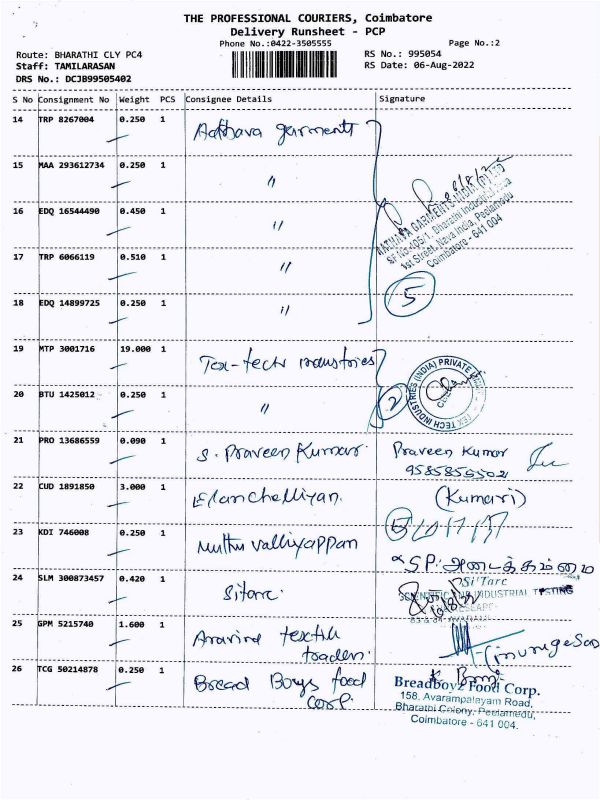 THE PROFESSIONAL COURIERS, Coimbatore
Delivery Runsheet - PCP
Phone No.:0422-3505555
Page No.:2
Route: BHARATHI CLY PC4
RS No.: 995054
Staff: TAMILARASAN
RS Date: 06-Aug-2022
DRS No.: DCJB99505402
S No Consignment No Weight PCS Consignee Details Signature
14 TRP 8267004 0.250 1 Aathava garments
15 MAA 293612734 0.250 1 "
16 EDQ 16544490 0.450 1 "
AATHAVA GARMENTS INDIA (P) LTD
SF No.405/1, Bharathi Industrial Area
1st Street, Nava India, Peelamedu
Coimbatore - 641 004
17 TRP 6066119 0.510 1 "
18 EDQ 14899725 0.250 1 "
5
19 MTP 3001716 19.000 1 Tex-tech industries
TEX TECH INDUSTRIES (INDIA) PRIVATE
20 BTU 1425012 0.250 1 "
2
21 PRO 13686559 0.090 1 S. Praveen Kumar. Praveen Kumar
9585855502
22 CUD 1891850 3.000 1 Elanchelliyan. (Kumari)
23 KDI 746008 0.250 1 Muthu valliyappan
SP. அடைக்கம்மை
24 SLM 300873457 0.420 1 Sitarc.
Si'Tarc
SCIENTIFIC AND INDUSTRIAL TESTING
25 GPM 5215740 1.600 1 Aravind textile
traders.
26 TCG 50214878 0.250 1 Bread Boys food
corp.
Breadboyz Food Corp.
158, Avarampalayam Road,
Bharathi Colony, Peelamedu,
Coimbatore - 641 004.